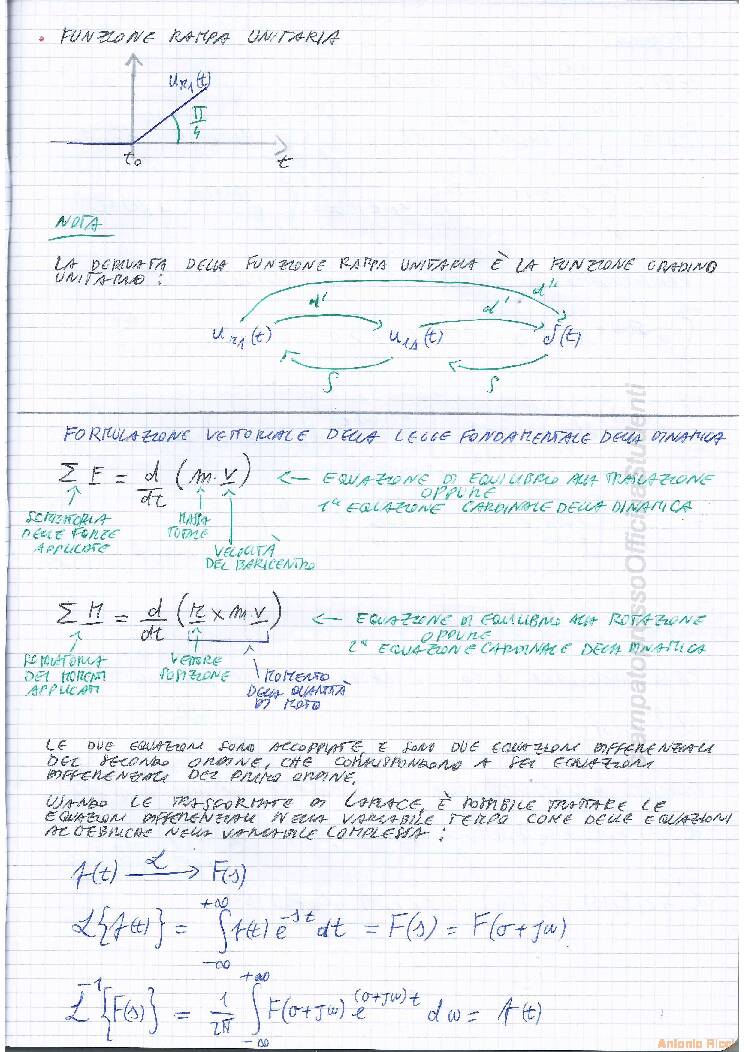 • FUNZIONE RAMPA UNITARIA
u_r1(t)
π/4
t₀
t
NOTA
LA DERIVATA DELLA FUNZIONE RAMPA UNITARIA È LA FUNZIONE GRADINO
UNITARIO:
d'
d'
d''
u_r1(t) u_1s(t) δ(t)
∫ ∫
FORMULAZIONE VETTORIALE DELLA LEGGE FONDAMENTALE DELLA DINAMICA
Σ F = d/dt (m · v) ← EQUAZIONE DI EQUILIBRIO ALLA TRASLAZIONE
OPPURE
1ª EQUAZIONE CARDINALE DELLA DINAMICA
SOMMATORIA
DELLE FORZE
APPLICATE
MASSA
TOTALE
VELOCITÀ
DEL BARICENTRO
Σ M = d/dt (r × m v) ← EQUAZIONE DI EQUILIBRIO ALLA ROTAZIONE
OPPURE
2ª EQUAZIONE CARDINALE DELLA DINAMICA
SOMMATORIA
DEI MOMENTI
APPLICATI
VETTORE
POSIZIONE
MOMENTO
DELLA QUANTITÀ
DI MOTO
LE DUE EQUAZIONI SONO ACCOPPIATE, E SONO DUE EQUAZIONI DIFFERENZIALI
DEL SECONDO ORDINE, CHE CORRISPONDONO A SEI EQUAZIONI
DIFFERENZIALI DEL PRIMO ORDINE.
USANDO LE TRASFORMATE DI LAPLACE, È POSSIBILE TRATTARE LE
EQUAZIONI DIFFERENZIALI NELLA VARIABILE TEMPO COME DELLE EQUAZIONI
ALGEBRICHE NELLA VARIABILE COMPLESSA:
f(t) —ℒ→ F(s)
ℒ{f(t)} = ∫_{-∞}^{+∞} f(t) e^{-st} dt = F(s) = F(σ+jω)
ℒ⁻¹{F(s)} = 1/2π ∫_{-∞}^{+∞} F(σ+jω) e^{(σ+jω)t} dω = f(t)
ampato presso Officina Studenti
Antonio Ricci